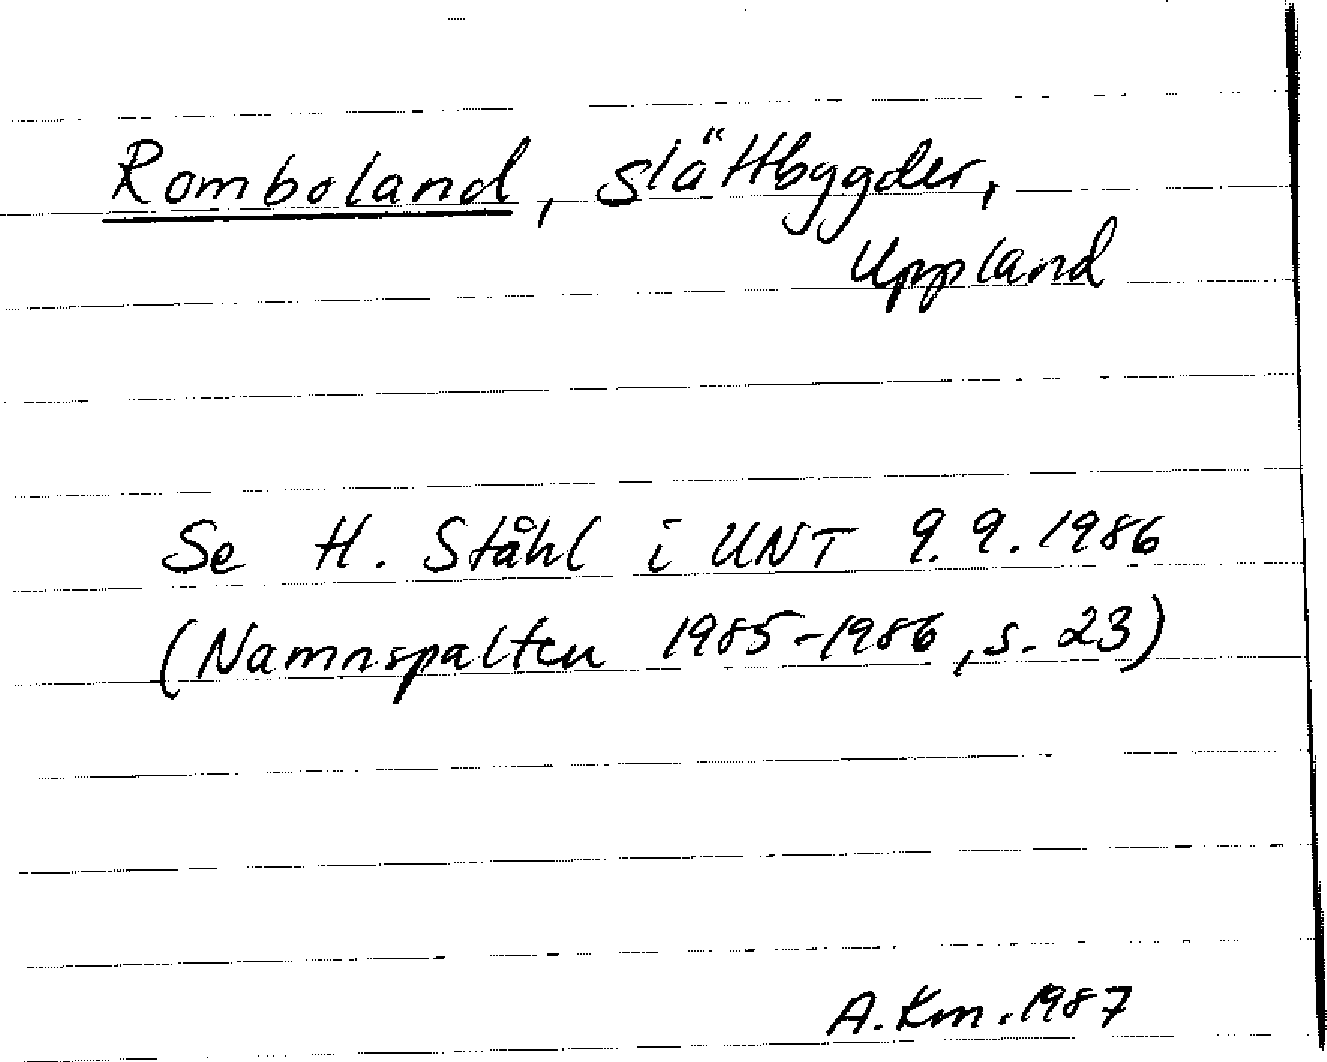 Romboland, slättbygder,
Uppland
Se H. Ståhl i UNT 9.9.1986
(Namnspalten 1985-1986, s. 23)
A. Km. 1987